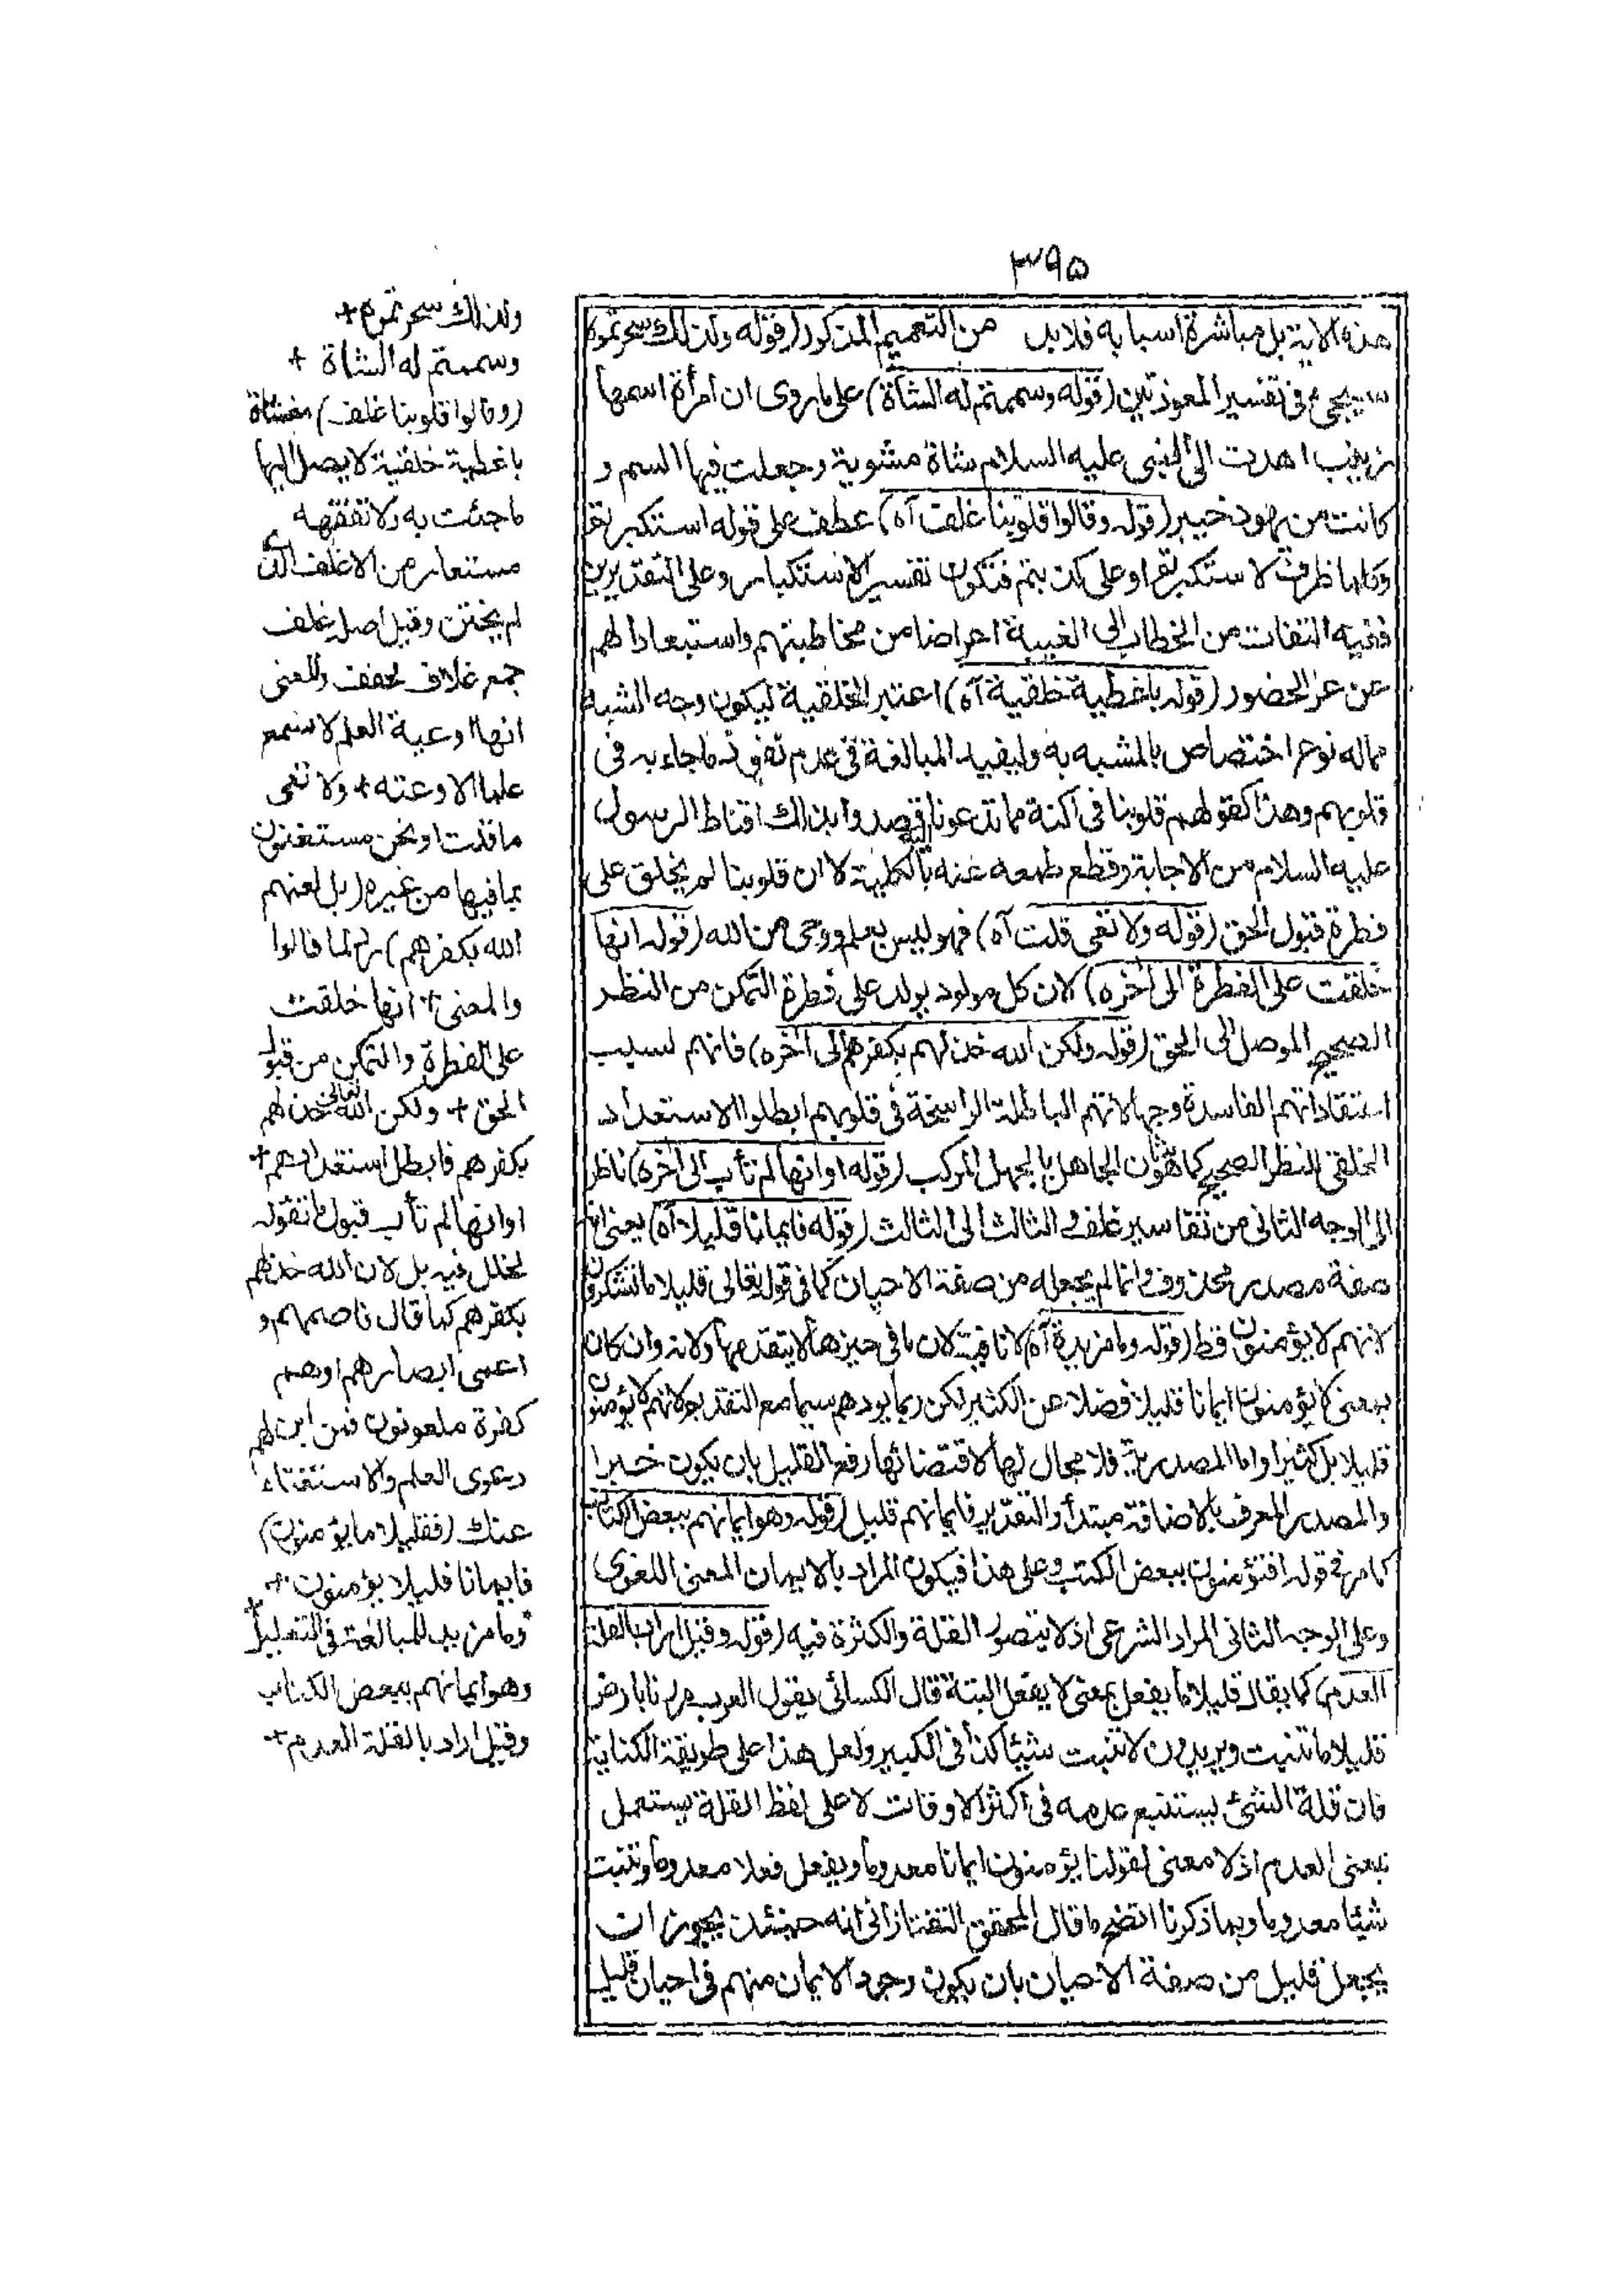 ۳۹۵
هذه الاية بل مباشرة اسبابه فلابد من التعميم المذكور (قوله ولذلك سحرتموه
سيجئ في تفسير المعوذتين (قوله وسممتم له الشاة) على ما روى ان امرأة اسمها
زينب اهدت الى النبى عليه السلام شاة مشوية وجعلت فيها السم و
كانت من يهود خيبر (قوله وقالوا قلوبنا غلف آه) عطف على قوله استكبرتم
وكلما ظرف لاستكبرتم او على كذبتم فتكون تفسير الاستكبار وعلى التقديرين
ففيه التفات من الخطاب الى الغيبة اعراضا من مخاطبتهم واستبعادا لهم
عن عز الحضور (قوله باغطية خلقية آه) اعتبر الخلقية ليكون وجه الشبه
مما له نوع اختصاص بالمشبه به وليفيد المبالغة فى عدم نفوذ ما جاء به فى
قلوبهم وهذا كقولهم قلوبنا فى اكنة مما تدعونا اليه قصدوا بذلك اقناط الرسول
عليه السلام من الاجابة وقطع طمعه عنه بالكلية لا ان قلوبنا لم يخلق على
فطرة قبول الحق (قوله ولا تعى قلت آه) فهو ليس بعلم ووحى من الله (قوله انها
خلقت على الفطرة الى اخره) لان كل مولود يولد على فطرة التمكن من النظر
الصحيح الموصل الى الحق (قوله ولكن الله خذلهم بكفرهم الى آخره) فانهم لسبب
اعتقاداتهم الفاسدة وجهالاتهم الباطلة الراسخة فى قلوبهم ابطلوا الاستعداد
الخلقى للنظر الصحيح كما هو شان الجاهل بالجهل المركب (قوله او انها لم تأب الى آخره) ناظر
الى الوجه الثانى من تفاسير غلف والثالث الى الثالث (قوله فايمانا قليلا آه) يعنى انه
صفة مصدر محذوف وانما لم يجعله من صفة الاحيان كما فى قوله تعالى قليلا ما تشكرون
لانهم لا يؤمنون قط (قوله وما مزيدة آه) لا نافية لان ما فى حيزها لا يتقدمها ولانه وان كان
بمعنى لا يؤمنون ايمانا قليلا فضلا عن الكثير لكن ربما يوهم سيما مع التقديم لانهم لا يؤمنون
قليلا بل كثيرا واما المصدرية فلا مجال لها لاقتضائها رفع القليل بان يكون خبرا
والمصدر المعرف بالاضافة مبتدأ والتقدير فايمانهم قليل (قوله وهو ايمانهم ببعض الكتاب
كما مر فى قوله افتؤمنون ببعض الكتب وعلى هذا فيكون المراد بالايمان المعنى اللغوى
وعلى الوجه الثانى المراد الشرعى اذ لا يتصور القلة والكثرة فيه (قوله وقيل اراد بالقلة
العدم) كما يقال قليلا ما يفعل بمعنى لا يفعل البتة قال الكسائى يقول العرب مررنا بارض
قليلا ما تنبت ويريدون لا تنبت شيئا كذا فى الكبير ولعل هذا على طريقة الكناية
فان قلة الشئ يستتبع عدمه فى اكثر الاوقات لا على لفظ القلة يستعمل
بمعنى العدم اذ لا معنى لقولنا يؤمنون ايمانا معدوما ويفعل فعلا معدوما وتنبت
شيئا معدوما وبما ذكرنا اتضح ما قال المحقق التفتازانى انه حينئذ يجوز ان
يجعل قليل من صفة الاحيان بان يكون وجود الايمان منهم فى احيان قليلة
ولذلك سحرتموه +
وسممتم له الشاة +
(وقالوا قلوبنا غلف) مغشاة
باغطية خلقية لا يصل اليها
ما جئت به ولا تفقهه
مستعار من الاغلف الذى
لم يختن وقيل اصله غلف
جمع غلاف لخفف والمعنى
انها اوعية العلم لا تسمع
علما الا وعته + ولا تعى
ما قلت او نحن مستغنون
بما فيها من غيره (بل لعنهم
الله بكفرهم) رد لما قالوا
والمعنى + انها خلقت
على الفطرة والتمكن من قبول
الحق + ولكن الله تعالى خذلهم
بكفرهم فابطل استعدادهم +
او انها لم تأب قبول ما تقوله
لخلل فيه بل لان الله خذلهم
بكفرهم كما قال فاصمهم و
اعمى ابصارهم او هم
كفرة ملعونون فمن اين لهم
دعوى العلم والاستغناء
عنك (فقليلا ما يؤمنون)
فايمانا قليلا يؤمنون +
وما مزيد للمبالغة فى التقليل +
وهو ايمانهم ببعض الكتاب
وقيل اراد بالقلة العدم +